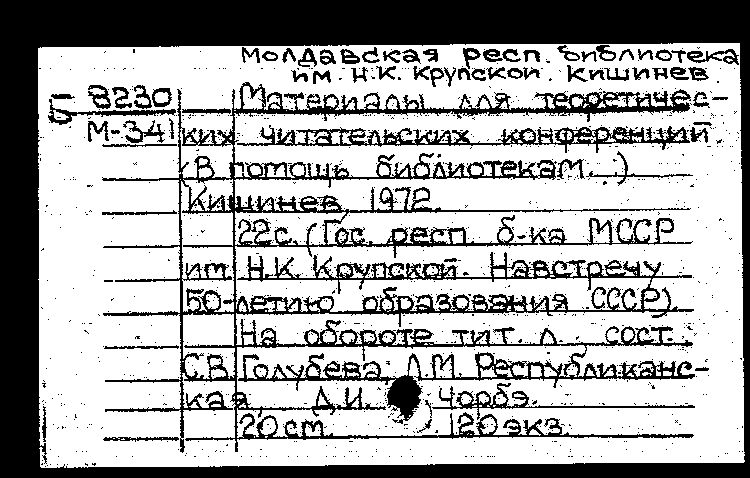 Молдавская респ. библиотека
им. Н.К. Крупской. Кишинев.
Б 8230 Материалы для теоретичес-
М-341 ких читательских конференций.
(В помощь библиотекам...).
Кишинев, 1972.
22с. (Гос. респ. б-ка МССР
им. Н.К. Крупской. Навстречу
50-летию образования СССР).
На обороте тит. л. сост.:
С.В. Голубева, Л.М. Республиканс-
кая, Д.И. Чорбэ.
20 см. 120 экз.